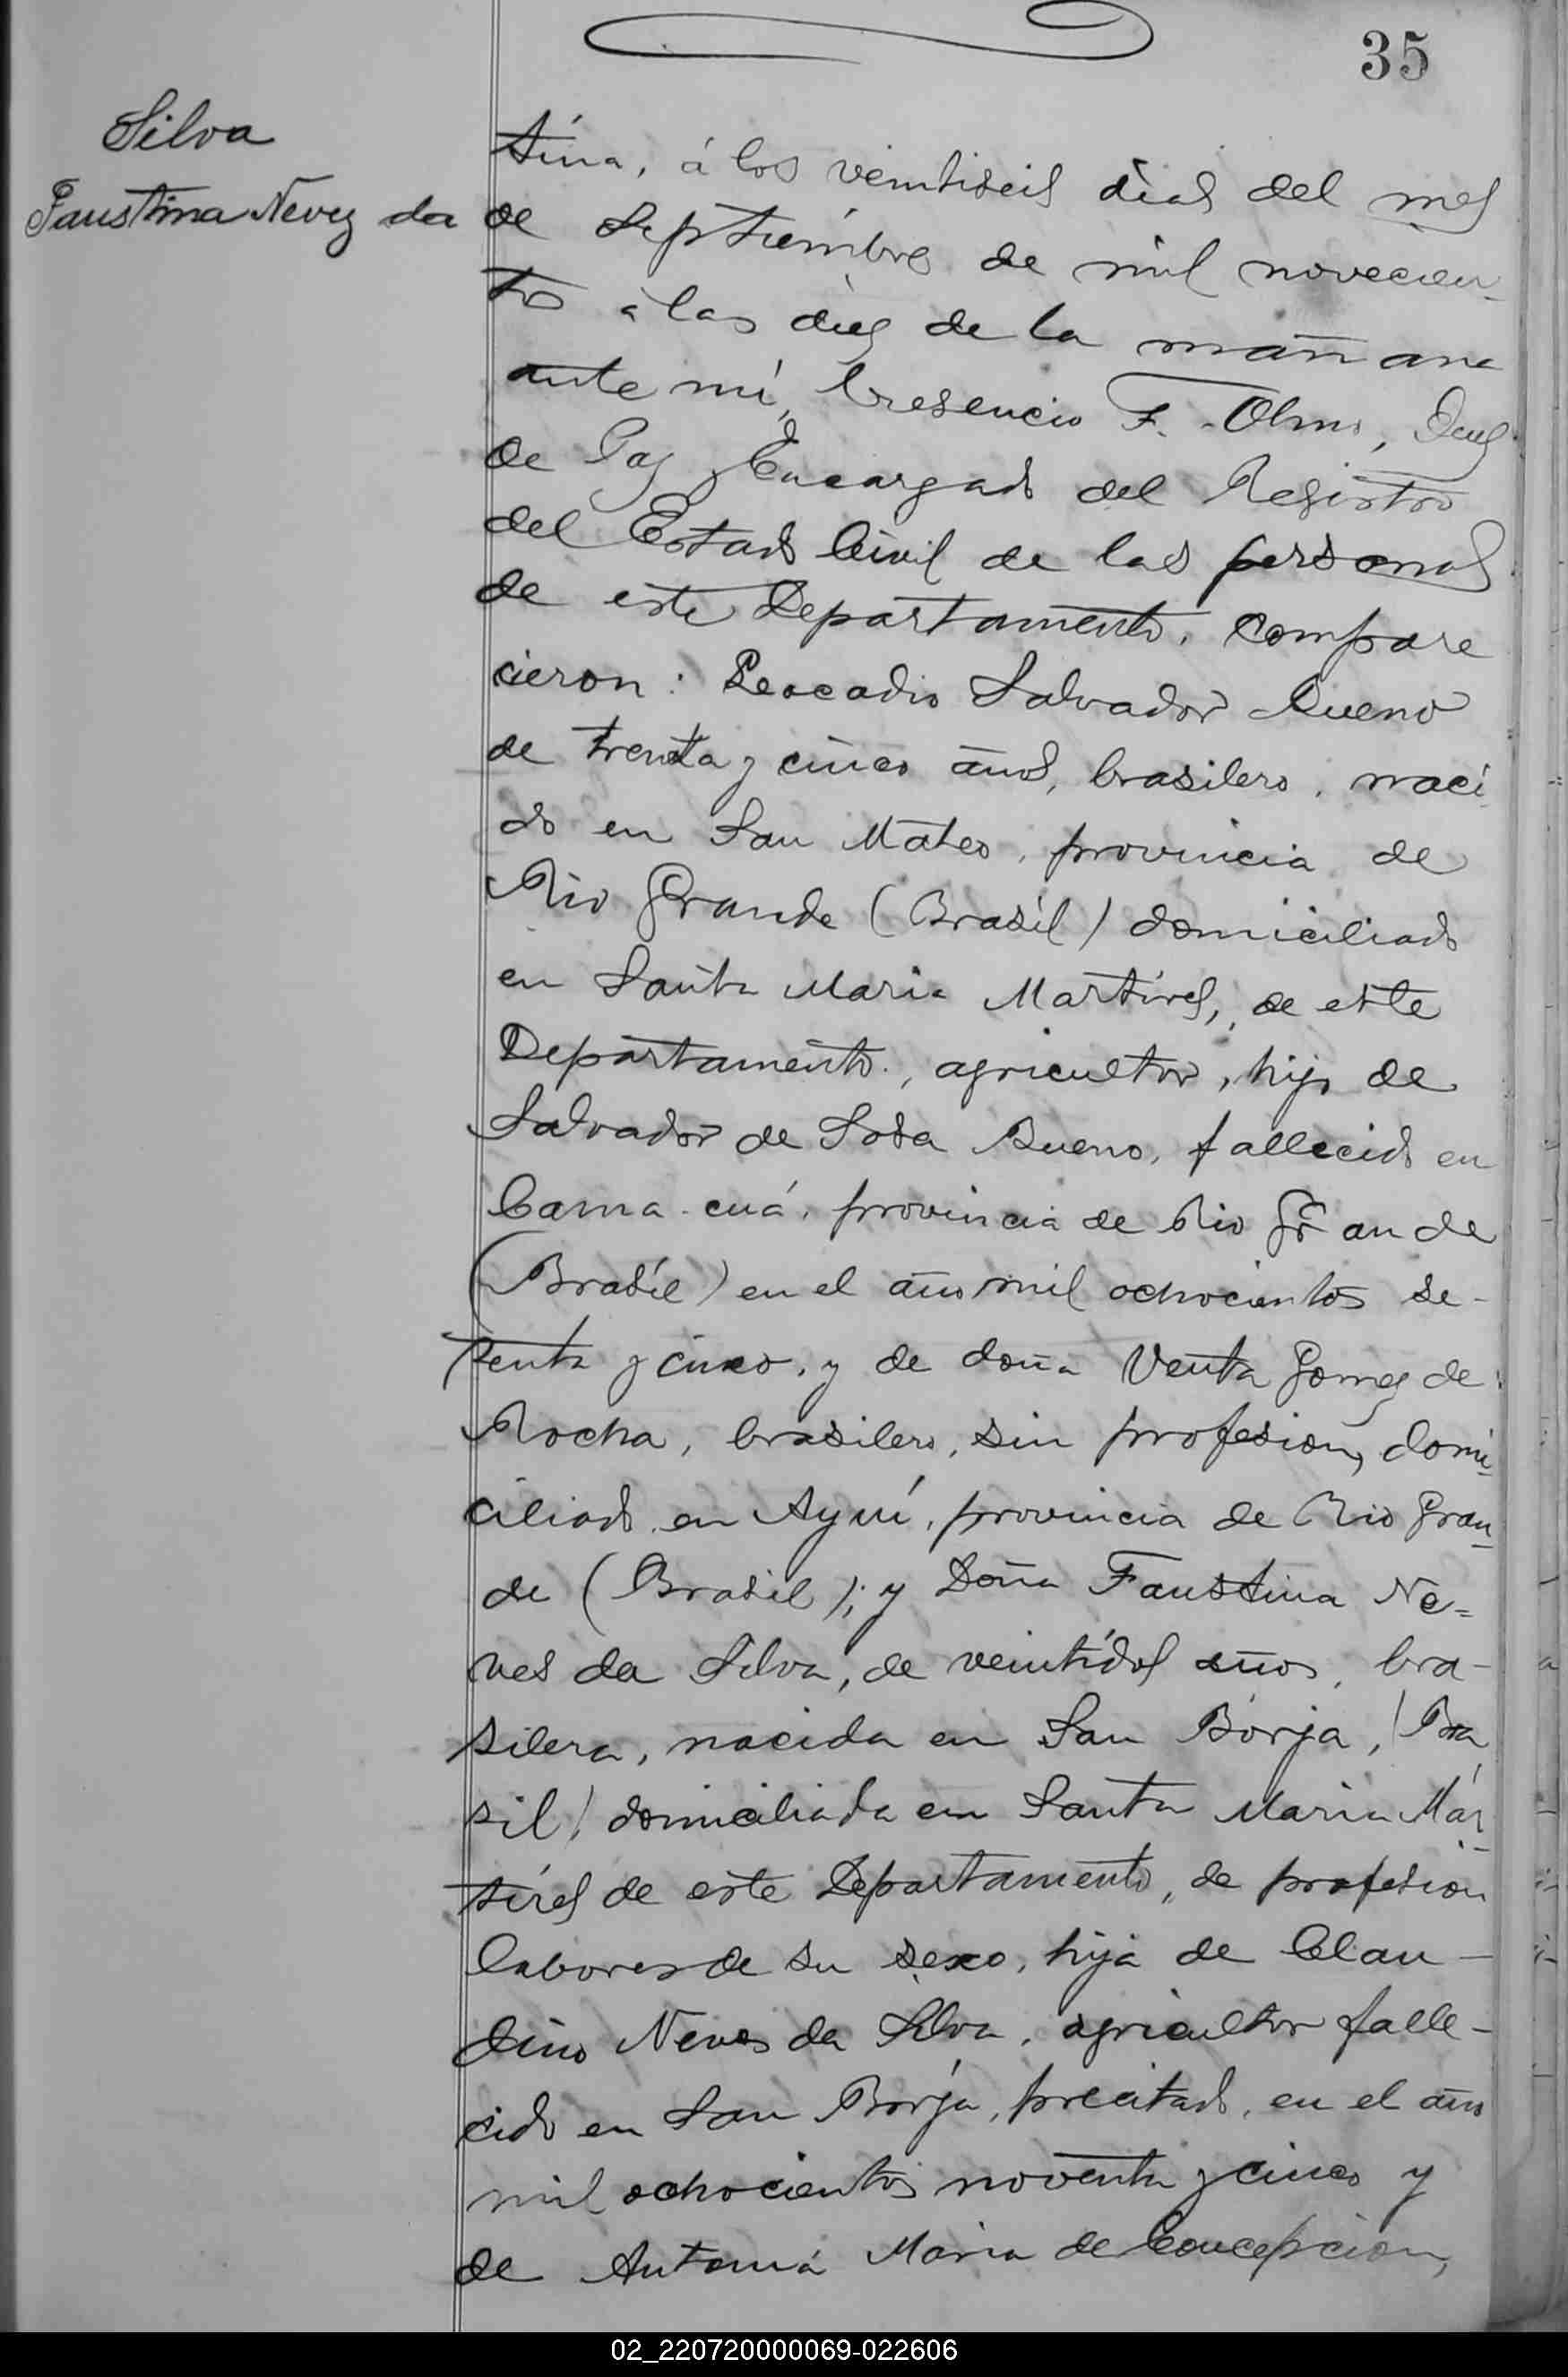 35
Silva
Faustina Nevez da
tina, á los veintiseis dias del mes
de Septiembre de mil novecien-
tos á las diez de la mañana
ante mí, Cresencio F. Olmo, Juez
de Paz y Encargado del Registro
del Estado Civil de las personas
de este Departamento, compare
cieron: Leocadio Salvador Bueno
de trenta y cinco años, brasilero, naci
do en San Mateo, provincia de
Rio Grande (Brasil) domiciliado
en Santa Maria Martires, de este
Departamento, agricultor, hijo de
Salvador de Sosa Bueno, fallecido en
Cama-cuá, provincia de Rio Grande
(Brasil) en el año mil ochocientos se-
tenta y cinco, y de doña Venta Gomez de
Rocha, brasilero, sin profesion, domi-
ciliado en Ayuí, provincia de Rio Gran-
de (Brasil); y Doña Faustina Ne=
ves da Silva, de veintidos años, bra-
silera, nacida en San Borja, (Bra
sil) domiciliada en Santa Maria Már-
tires de este Departamento, de profesion
labores de su sexo, hija de Clau-
dino Neves da Silva, agricultor falle-
cido en San Borja, precitado, en el año
mil ochocientos noventa y cinco y
de Antonia Maria de Concepcion,
02_220720000069-022606